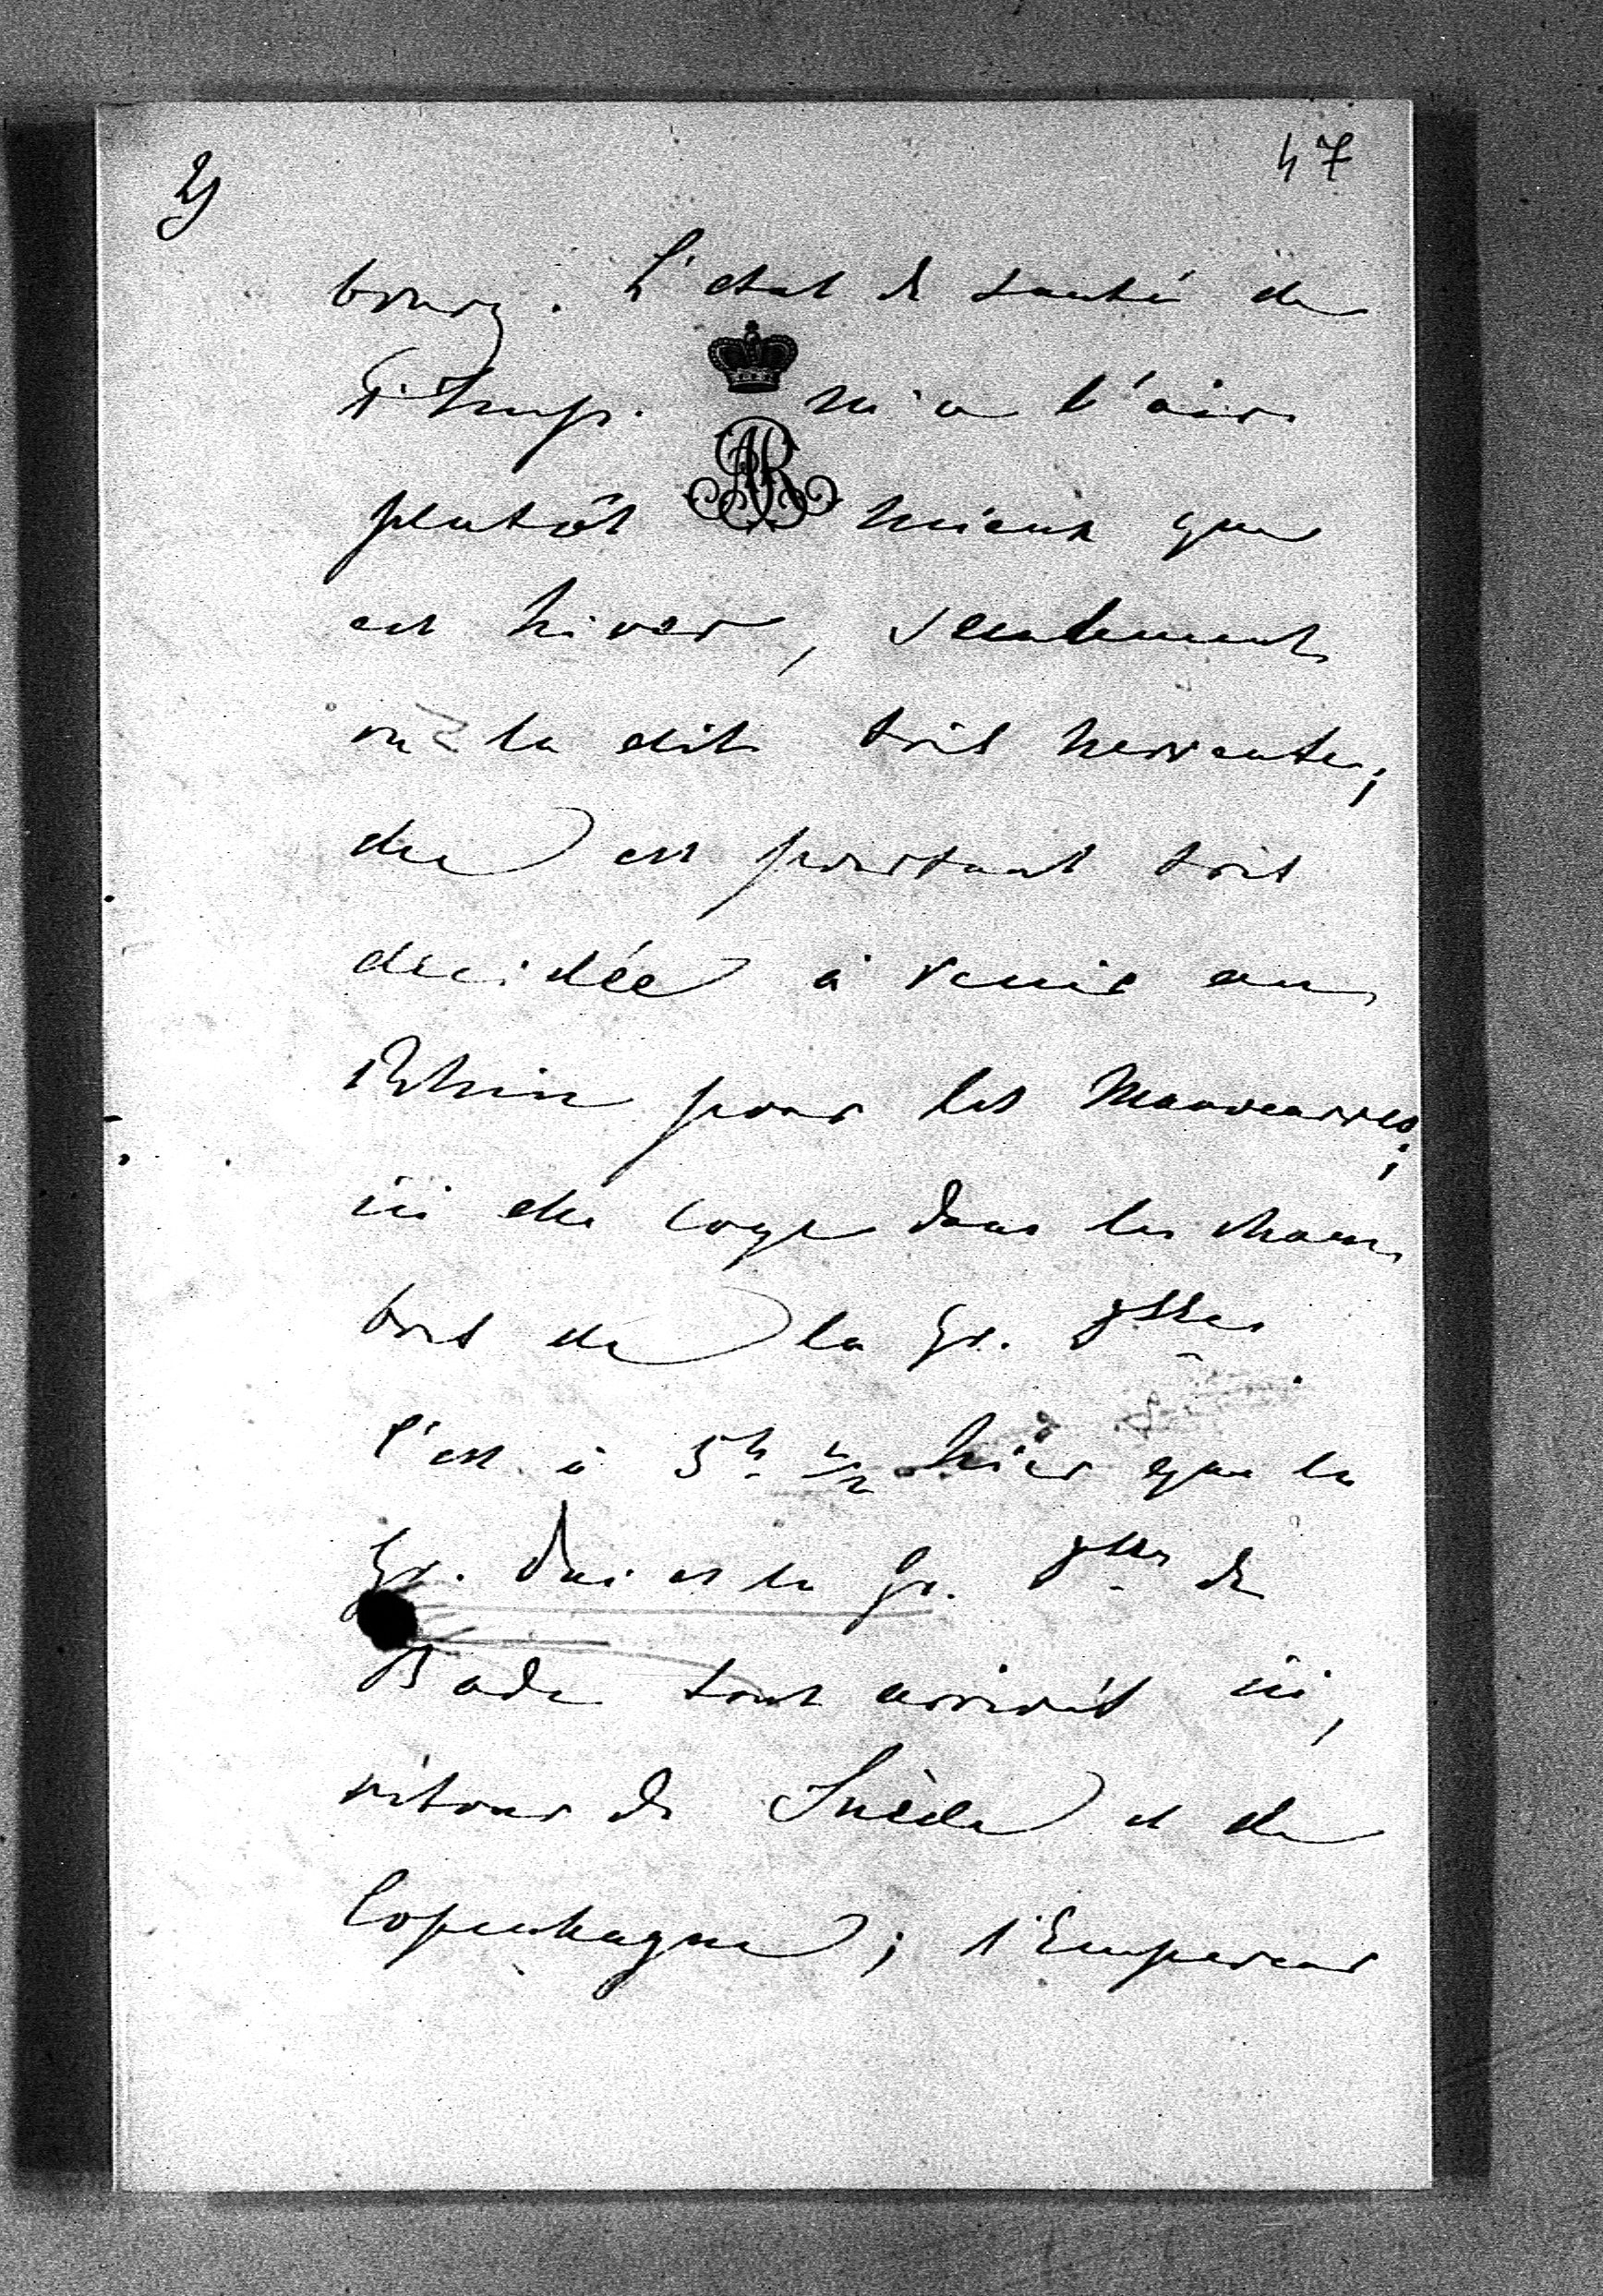 2)
47
bourg. L'état de santé de
l'Imp. m'a l'air
plutôt mieux que
cet hiver, seulement
on la dit très nerveuse;
elle est pourtant très
decidée à venir au
Rhin pour les manoeuvres;
ici elle loge dans les cham
bres de la Gr. Dsse.
C'est à 5h. 1/2 hier que le
Gr. Duc et la Gr. Dsse de
Bade sont arrivés ici,
retour de Suède et de
Copenhague; l'Empereur